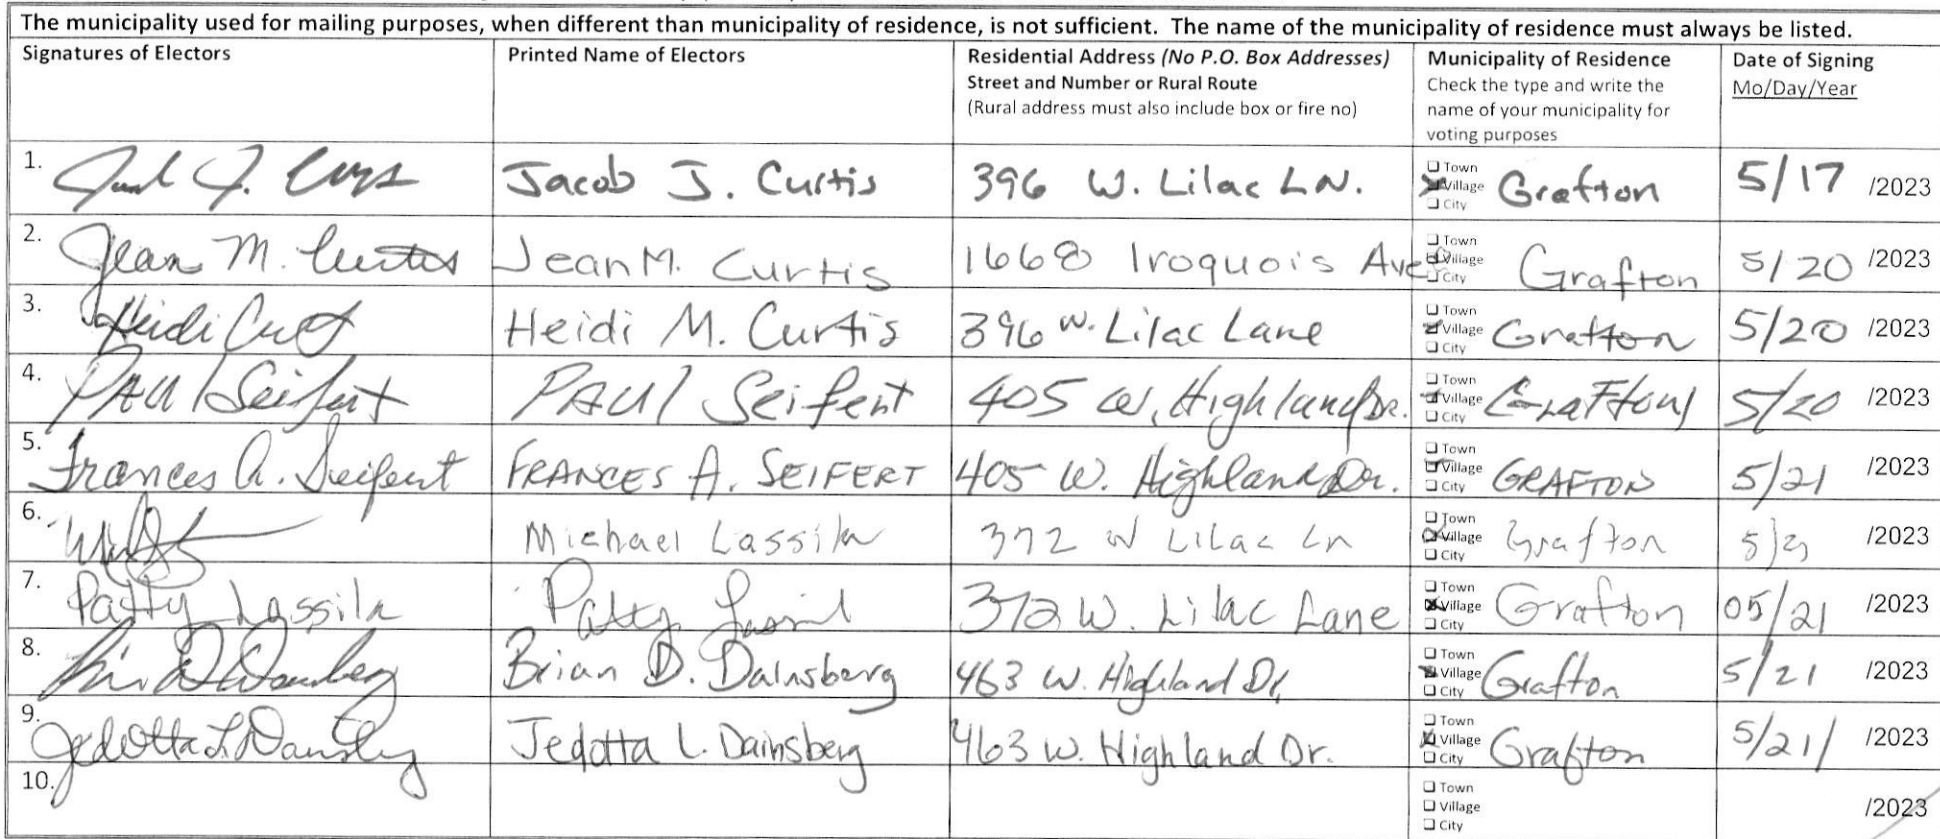 The municipality used for mailing purposes, when different than municipality of residence, is not sufficient. The name of the municipality of residence must always be listed.
Signatures of Electors
Printed Name of Electors
Residential Address (No P.O. Box Addresses)
Street and Number or Rural Route
(Rural address must also include box or fire no)
Municipality of Residence
Check the type and write the
name of your municipality for
voting purposes
Date of Signing
Mo/Day/Year
1. Jacob J. Curtis 396 W. Lilac LN. Town Village City Grafton 5/17 /2023
2. Jean M. Curtis Jean M. Curtis 1668 Iroquois Ave Town Village City Grafton 5/20 /2023
3. Heidi Curtis Heidi M. Curtis 396 W. Lilac Lane Town Village City Grafton 5/20 /2023
4. PAUl Seifert PAUl Seifert 405 W. Highland Dr. Town Village City Grafton 5/20 /2023
5. Frances A. Seifert FRANCES A. SEIFERT 405 W. Highland Dr. Town Village City GRAFTON 5/21 /2023
6. Michael Lassila 372 W Lilac Ln Town Village City Grafton /2023
7. Patty Lassila Patty 372 W. Lilac Lane Town Village City Grafton 05/21 /2023
8. Brian D. Dainsberg 463 W. Highland Dr, Town Village City Grafton 5/21 /2023
9. Jedotta L. Dainsberg 463 W. Highland Dr. Town Village City Grafton 5/21/ /2023
10. Town Village City /2023